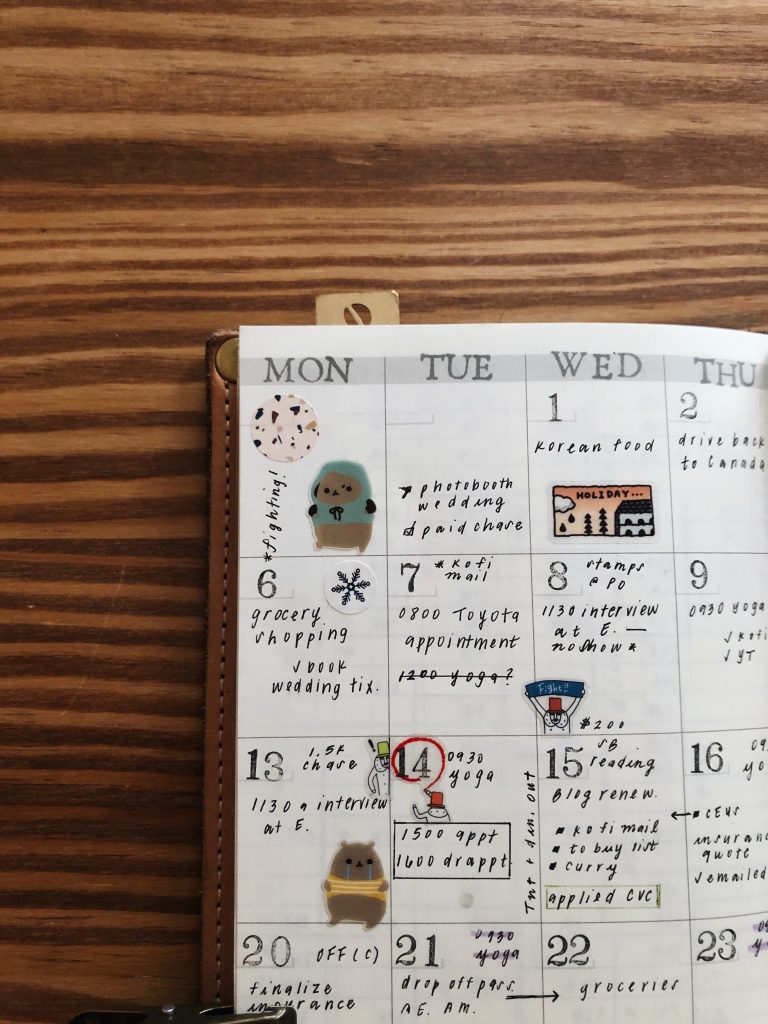 MON TUE WED THU
*fighting!
photobooth
wedding
paid chase
1
Korean food
HOLIDAY...
2
drive back
to Canada
6
grocery
shopping
√ book
wedding tix.
7
* Kofi
mail
0800 Toyota
appointment
1200 yoga?
8
stamps
@ PO
1130 interview
at E. —
no show *
Fight!!
$200
9
0930 yoga
√ Kofi
√ YT
13
1.5K
chase
1130 a interview
at E.
!
14
0930
yoga
1500 appt
1600 dr appt
15
SB
reading
Blog renew.
Kofi mail
to buy list
curry
applied CVC
16
09
yo
CEUs
insuran
quote
√ emailed
20
OFF (C)
finalize
insurance
21
0930
yoga
drop off pass.
@ E. AM.
22
groceries
23